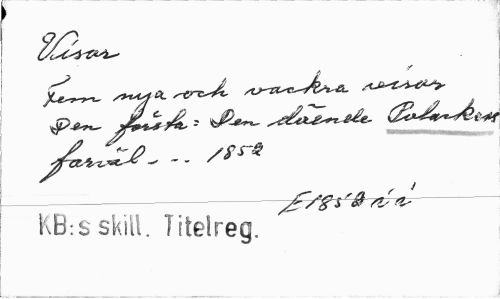 Visor
Fem nya och vackra visor
Den första: Den döende Polackens
farväl - - - 1852
E1852 n i
KB:s skill. Titelreg.